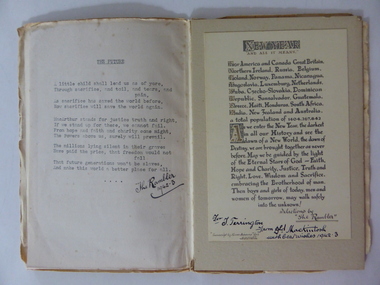 THE FUTURE
A little child shall lead us as of yore,
Through sacrifice, and toil, and tears, and
pain,
As sacrifice has saved the world before,
Now sacrifice will save the world again.
for justice truth and right,
If we stand up for these, we cannot fail,
From hope and faith and charity some might,
The forces above us, surely will prevail.
The millions lying silent in their graves
Have paid the price, that freedom would not
fail
That future generations won't be slaves,
And make this world a better place for all.
The Rambler
1942-3
AND ALL IT MEANS.
America and Canada Great Britain,
Northern Ireland, Russia, Belgium,
Poland, Norway, Panama, Nicaragua,
Yugoslavia, Luxemburg, Netherlands,
Cuba, Czecho-Slovakia, Dominican
Republic, Guatemala,
Greece, Haiti, Honduras, South Africa,
India, New Zealand and Australia,
a total population of
As we enter the New Year, the darkest
in all our History, and see the
dawn of a New World, the dawn of
Destiny, as we are brought together as never
before. May we be guided by the light
of the Eternal Stars of God — Faith,
Hope and Charity, Justice, Truth and
Right, Love, Wisdom and Sacrifice,
embracing the Brotherhood of man.
Then boys and girls of today, men and
women of tomorrow, may walk safely
into the unknown!
"The Rambler"
To J. Terrington
From Mackintosh
with best wishes 1942-3